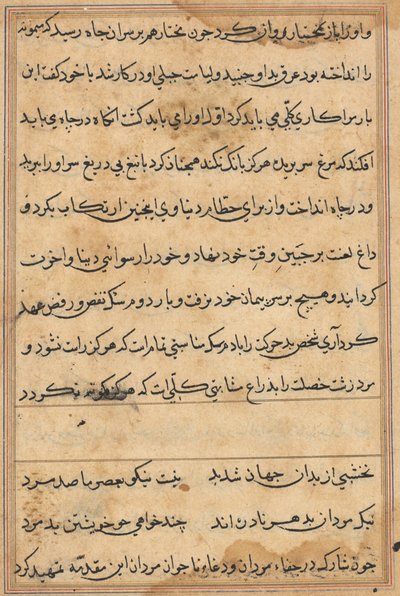 و او را باز بمختیار روان کرد چون بختیار هم بر سر آن چاه رسید که سیمونه
را انداخته بود عرق بد او جنبید و لیاست جبلی او در کار شد با خود گفت این
بار مرا کاری کلّی می باید کرد اول او را می باید کشت آنگاه در چاه می باید
افکند که مرغ سر بریده هرگز بانگ نکند همچنان کرد با تیغ بی دریغ سر او را ببرید
و در چاه انداخت و از برای حطام دنیاوی اینچنین ارتکاب بکرد و
داغ لعنت بر جبین وقت خود نهاد و خود را رسوائی دنیا و آخرت
گردانید و هیچ بر سر پیمان خود نرفت و بار دوم نقض و رفض عهد
کرد آری شخص بد حرکت را با دم سک مناسبتی تمام است که هرگز راست نشود و
مرد زشت خصلت را بذراع مشابهتی کلّی است که هرگز نکردد
نخشبی از بدان جهان شد بد نیست نیکو بعصر ما صد مرد
نیک مردان بدهر نادر اند چند خواهی تو خویشتن بد مرد
چون شارک در جفاء مردان و دغاء ناجوان مردان این مقدّمه تمهید کرد